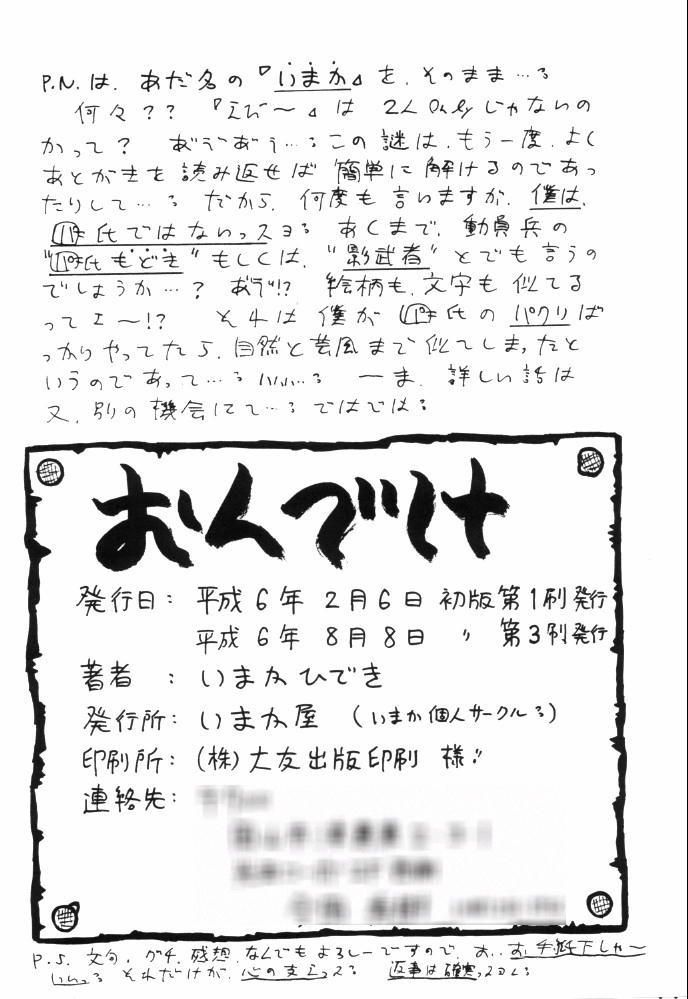 P.N.は、あだ名の『いまか』を、そのまま…る
何々?? 『えび〜』は 2人Onlyじゃないの
かって? あ゛う゛あ゛う…る この謎は、もう一度、よく
あとがきを読み返せば 簡単に解けるのであっ
たりして…る だから、何度も言いますが、僕は、
氏ではないっスヨる あくまで、動員兵の
"氏もどき" もしくは、"影武者" とでも言うの
でしょうか…? あ゛う゛!? 絵柄も、文字も似てる
ってェ〜!? それは僕が 氏の パクリば
っかりやってたら、自然と芸風まで似てしまったと
いうのであって…る いいい…る ーま、詳しい話は
又、別の機会にて…る ではではる
おんでけ
発行日: 平成6年2月6日 初版第1刷発行
平成6年8月8日 〃 第3刷発行
著者 : いまかひでき
発行所: いまか屋 (いまか個人サークルる)
印刷所: (株)大友出版印刷 様!!
連絡先:
P.S. 文句、グチ、感想 なんでもよろしーですので、お、お手紙下しゃ〜
いいっる それだけが、心の支えっスる 返事は確実っスヨる